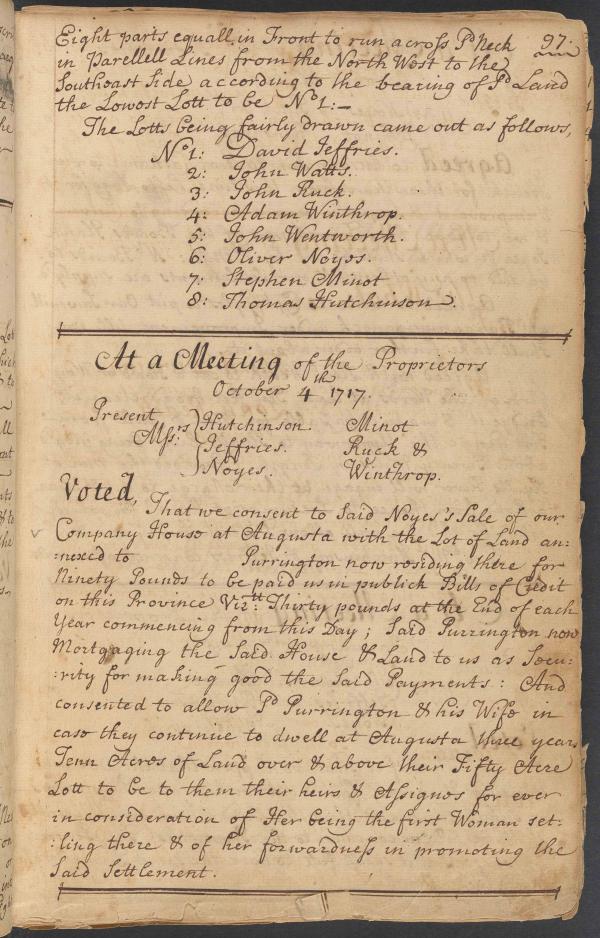 97.
Eight parts equall in Front to run across Sd Neck
in Parellell Lines from the North West to the
Southeast Side according to the bearing of Sd Land
the Lowest Lott to be No 1:–
The Lotts being fairly drawn came out as follows,
No 1: David Jeffries.
2: John Watts.
3: John Ruck.
4: Adam Winthrop.
5: John Wentworth.
6: Oliver Noyes.
7: Stephen Minot
8: Thomas Hutchinson.
At a Meeting of the Proprietors
October 4th 1717.
Present
Messrs: } Hutchinson. Minot
Jeffries. Ruck &
Noyes. Winthrop.
Voted,
That we consent to Said Noyes's Sale of our
Company House at Augusta with the Lot of Land an:
:nexed to Purrington now residing there for
Ninety Pounds to be paid us in publick Bills of Credit
on this Province Viztt: Thirty pounds at the End of each
Year commencing from this Day; Said Purrington now
Mortgaging the Said House & Land to us as Secu:
:rity for making good the Said Payments: And
consented to allow Sd Purrington & his Wife in
case they continue to dwell at Augusta three years
Tenn Acres of Land over & above their Fifty Acre
Lott to be to them their heirs & Assignes for ever
in consideration of Her being the first Woman set:
:ling there & of her forwardness in promoting the
Said Settlement.